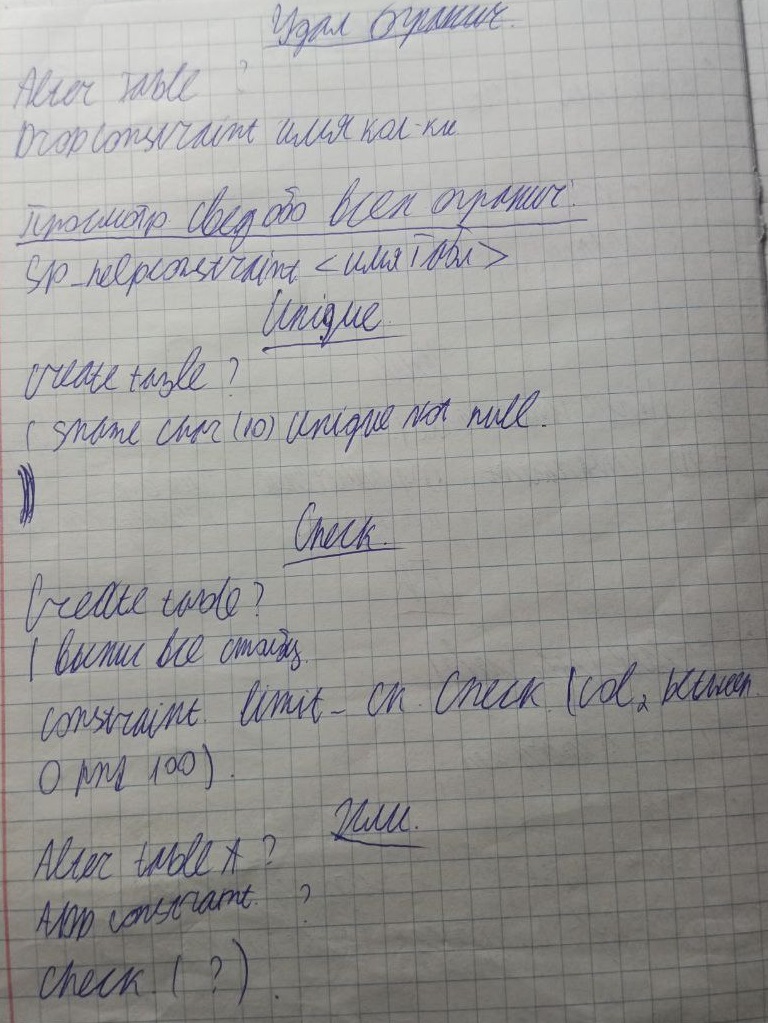 Удал огранич.
Alter table ?
Drop constraint имя кол-ки
Просмотр свед обо всех огранич:
Sp_helpconstraint <имя Табл>
Unique
Create table ?
( sname char (10) Unique not null.
)
Check.
Create table ?
( выпис все столбц.
constraint limit_ck Check (col2 between
0 and 100).
Или.
Alter table A ?
ADD constraint ?
Check ( ? ).